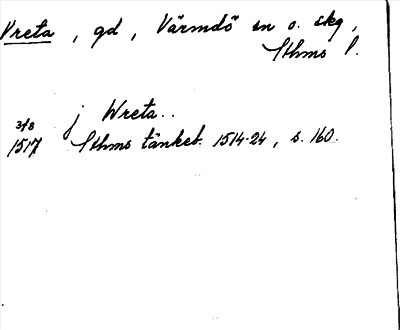 Vreta, gd, Värmdö sn o. skg,
Sthms l.
j Wreta..
3/8
1517 Sthms tänkeb. 1514-24, s. 160.